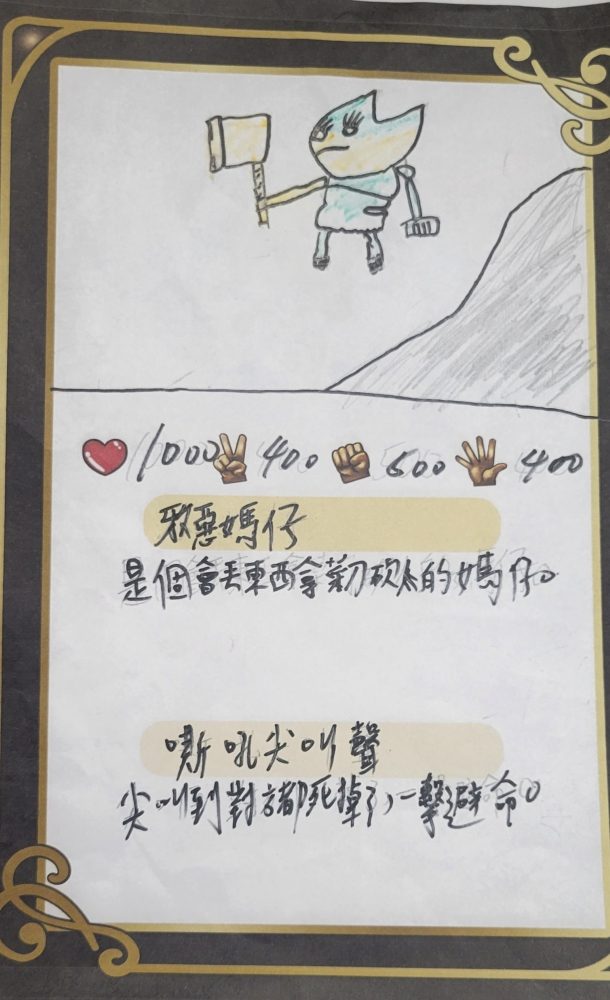 1000 400 600 400
邪惡媽仔
是個會丟東西拿菜刀砍人的媽仔。
嘶吼尖叫聲
尖叫到對諸都死掉了,一擊避命。